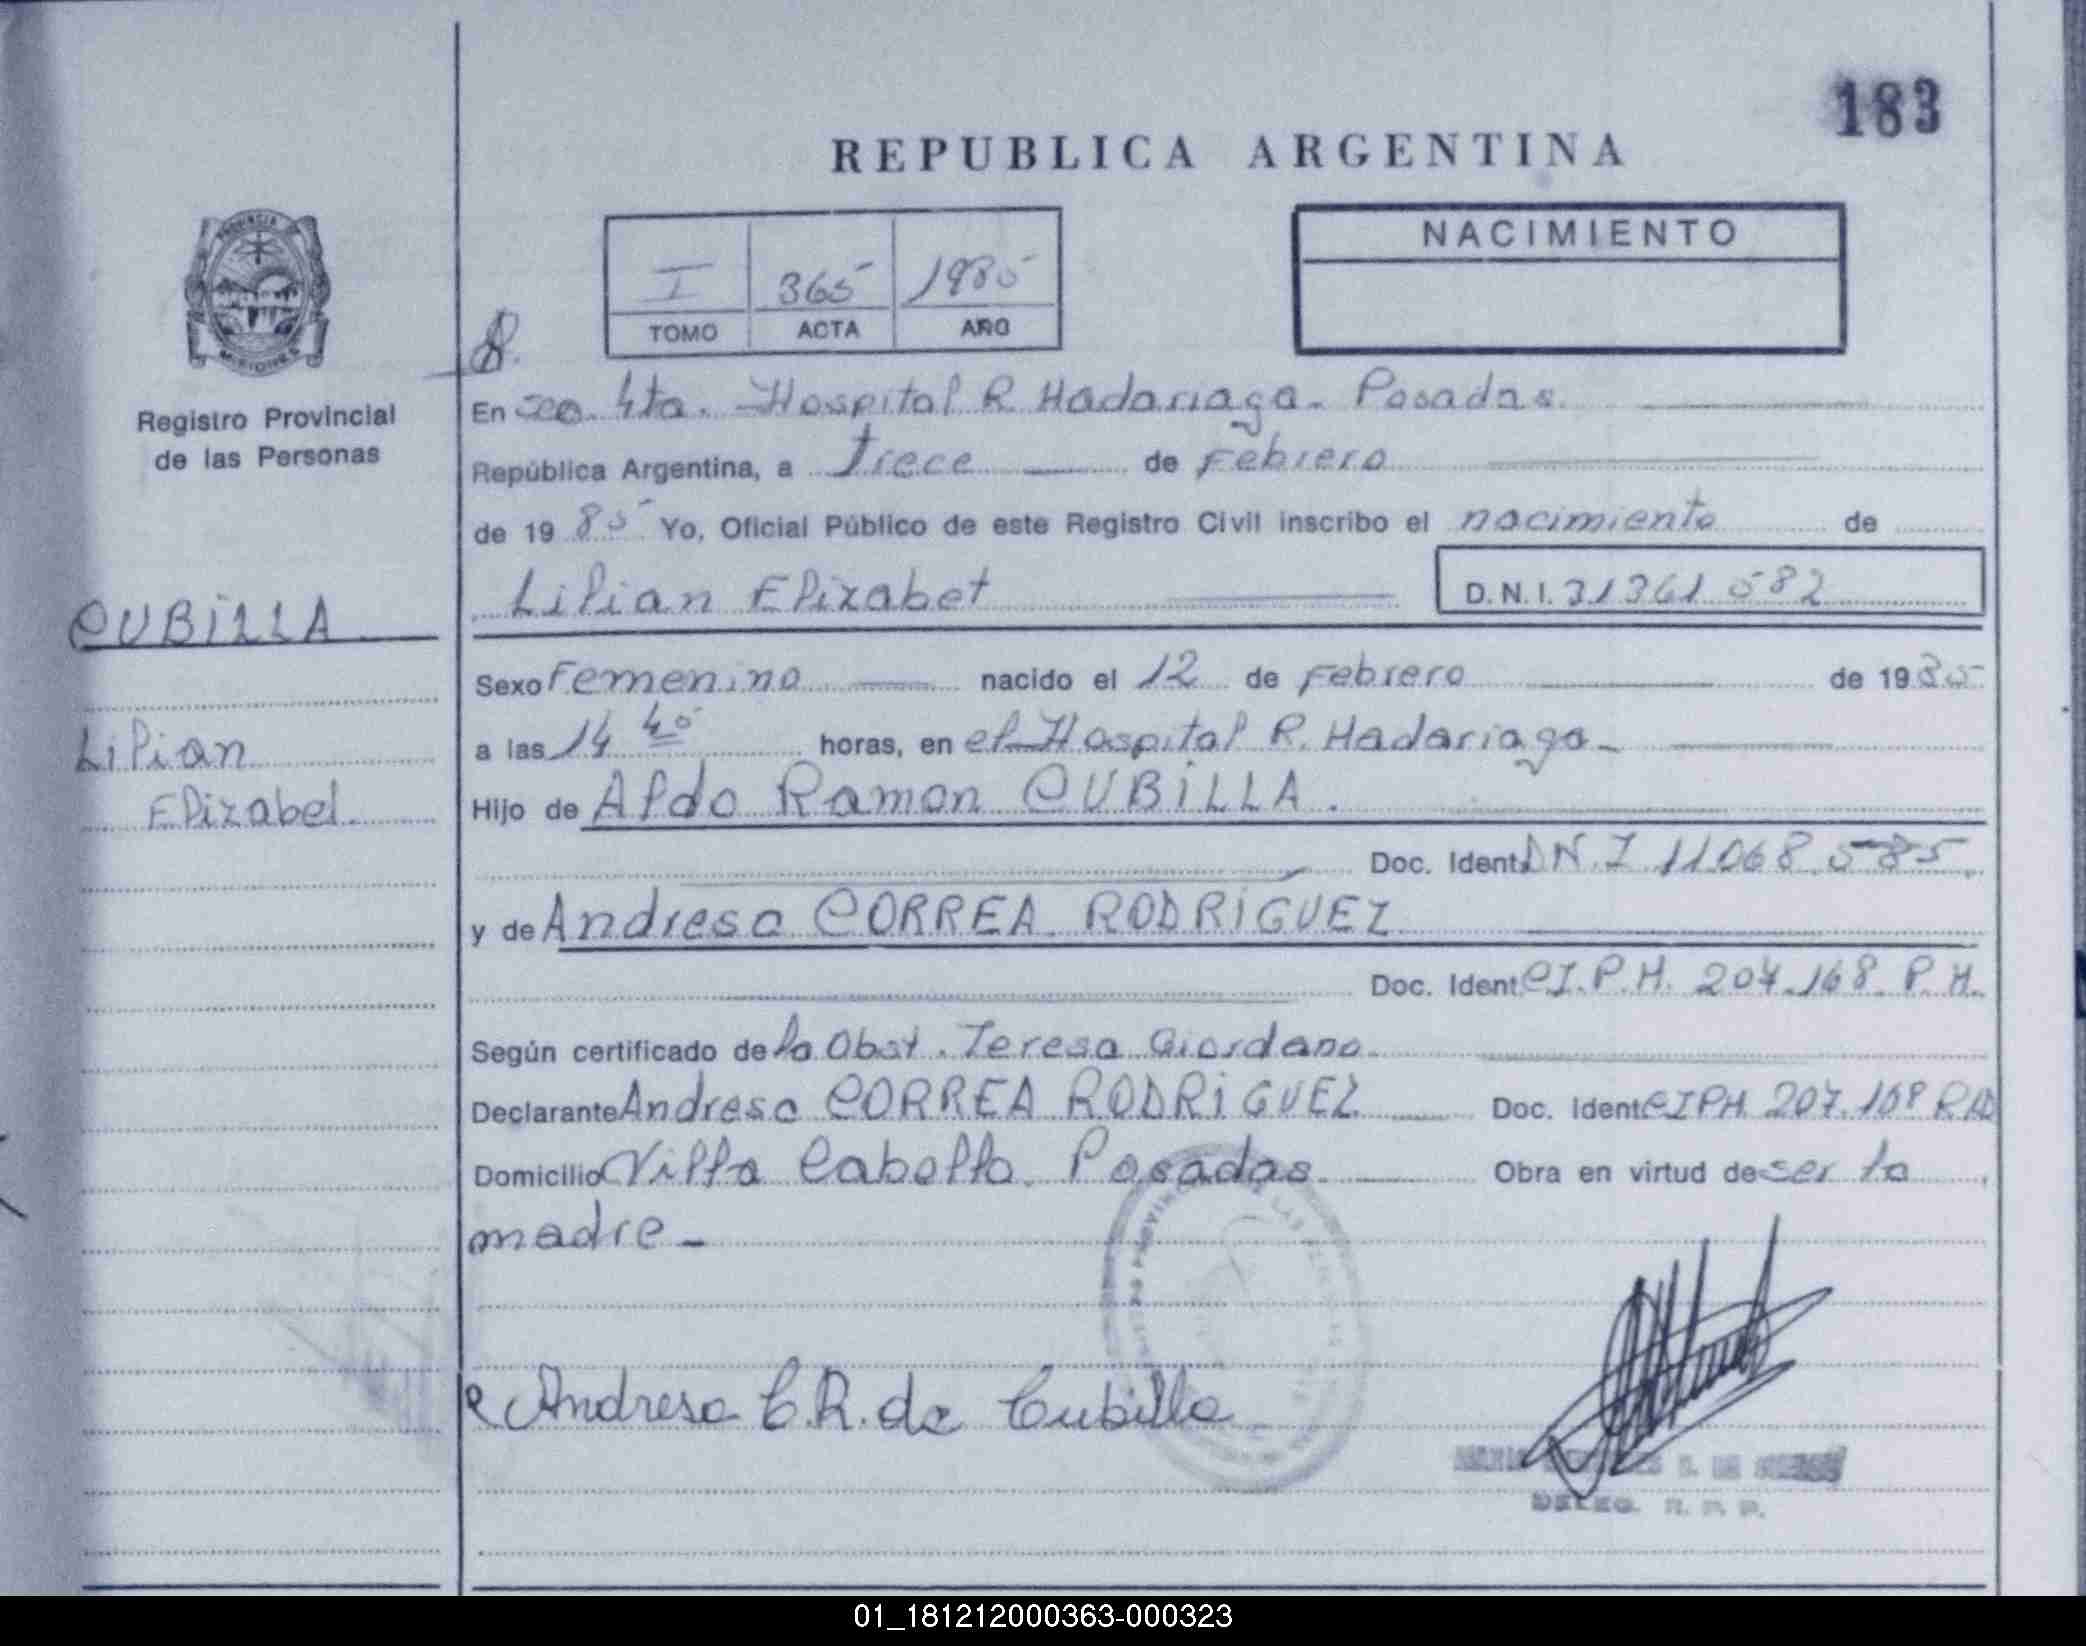 183
REPUBLICA ARGENTINA
PROVINCIA
MISIONES
Registro Provincial
de las Personas
I 365 1985
TOMO ACTA AÑO
NACIMIENTO
En Sec. 4ta. Hospital R. Madariaga. Posadas.
República Argentina, a Trece de Febrero
de 19 85 Yo, Oficial Público de este Registro Civil inscribo el nacimiento de
Lilian Elizabet D.N.I. 31361.582
CUBILLA
Lilian
Elizabet.
Sexo Femenino nacido el 12 de Febrero de 1985
a las 14 40 horas, en el Hospital R. Madariaga-
Hijo de Aldo Ramon CUBILLA.
Doc. Ident. D.N.I 11.068.585.
y de Andresa CORREA RODRIGUEZ
Doc. Ident. CI.P.H. 207.168 P.H.
Según certificado de la Obst. Teresa Giordano
Declarante Andresa CORREA RODRIGUEZ Doc. Ident. CIPH 207.168
Domicilio Villa Cabello. Posadas. Obra en virtud de ser la
madre-
Andresa C.R. de Cubilla
DELEG. R. P. P.
01_181212000363-000323